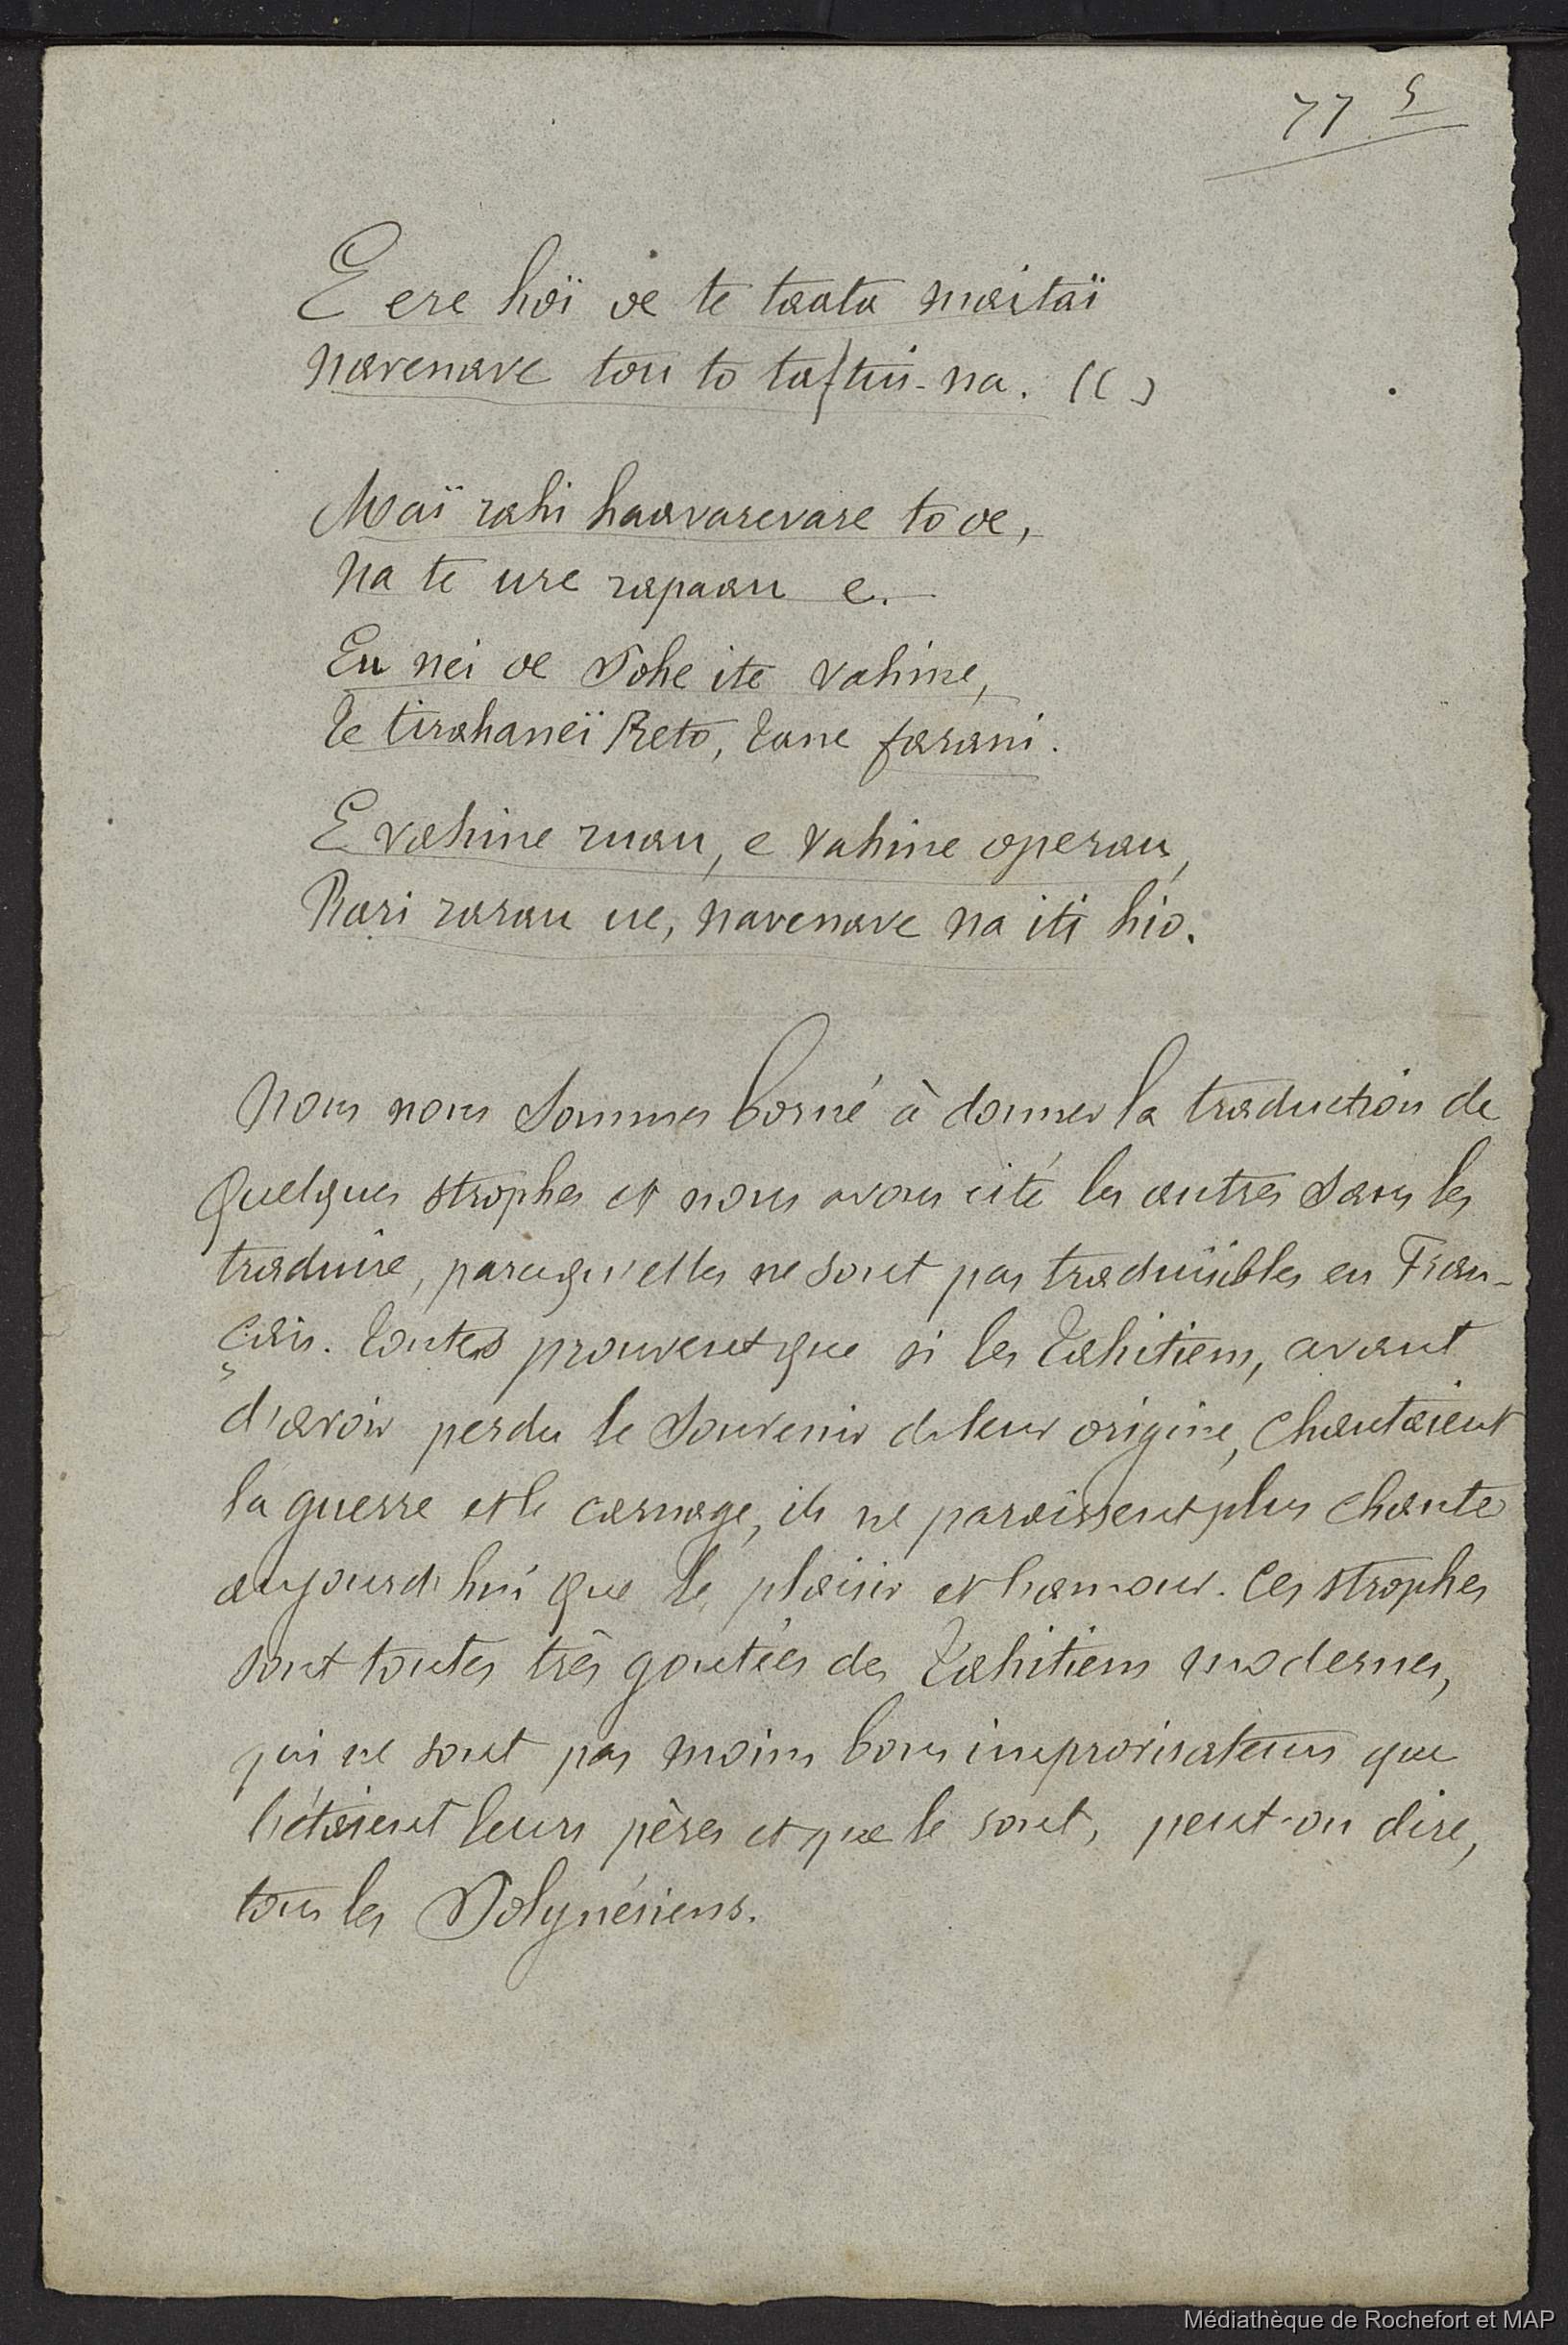 77 5
E ere hoï oe te taata maitaï
navenave tou to ta/tui-na. (( )
Maï rahi haavarevare to oe,
na te ure rapaau e.
Eu nei oe Pohe ite vahine,
Te tirahaneï Reto, Tane farani.
E vahine ruau, e vahine operau,
Rari rarau ue, navenave na iti hio.
Nous nous sommes borné à donner la traduction de
quelques strophes et nous avons cité les autres sans les
traduire, parcequ'elles ne sont pas traduisibles en Fran-
çais. Toutes prouvent que si les Tahitiens, avant
d'avoir perdu le souvenir de leur origine, chantaient
la guerre et le carnage, ils ne paraissent plus chanter
aujourd'hui que le plaisir et l'amour. Ces strophes
sont toutes très goutées des Tahitiens modernes,
qui ne sont pas moins bons improvisateurs que
l'étaient leurs pères et que le sont, peut-on dire,
tous les Polynésiens.
Médiathèque de Rochefort et MAP